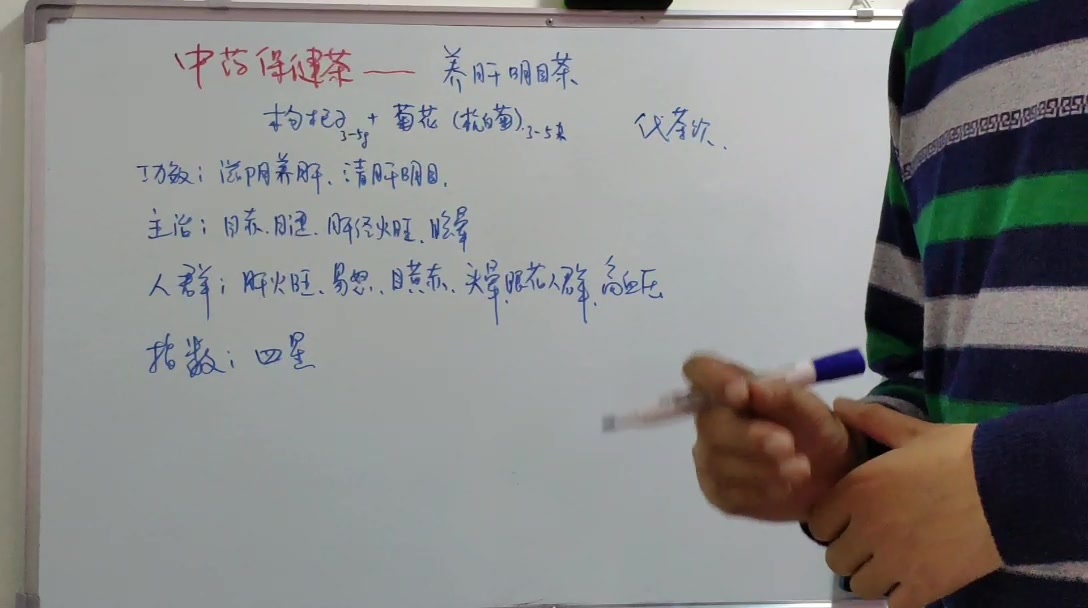 中药保健茶 —— 养肝明目茶
枸杞子 3-5g + 菊花 (杭白菊) 3-5朵 代茶饮.
功效: 滋阴养肝、清肝明目.
主治: 目赤、目涩、肝经火旺、眩晕
人群: 肝火旺、易怒、目黄赤、头晕眼花人群、高血压
指数: 四星